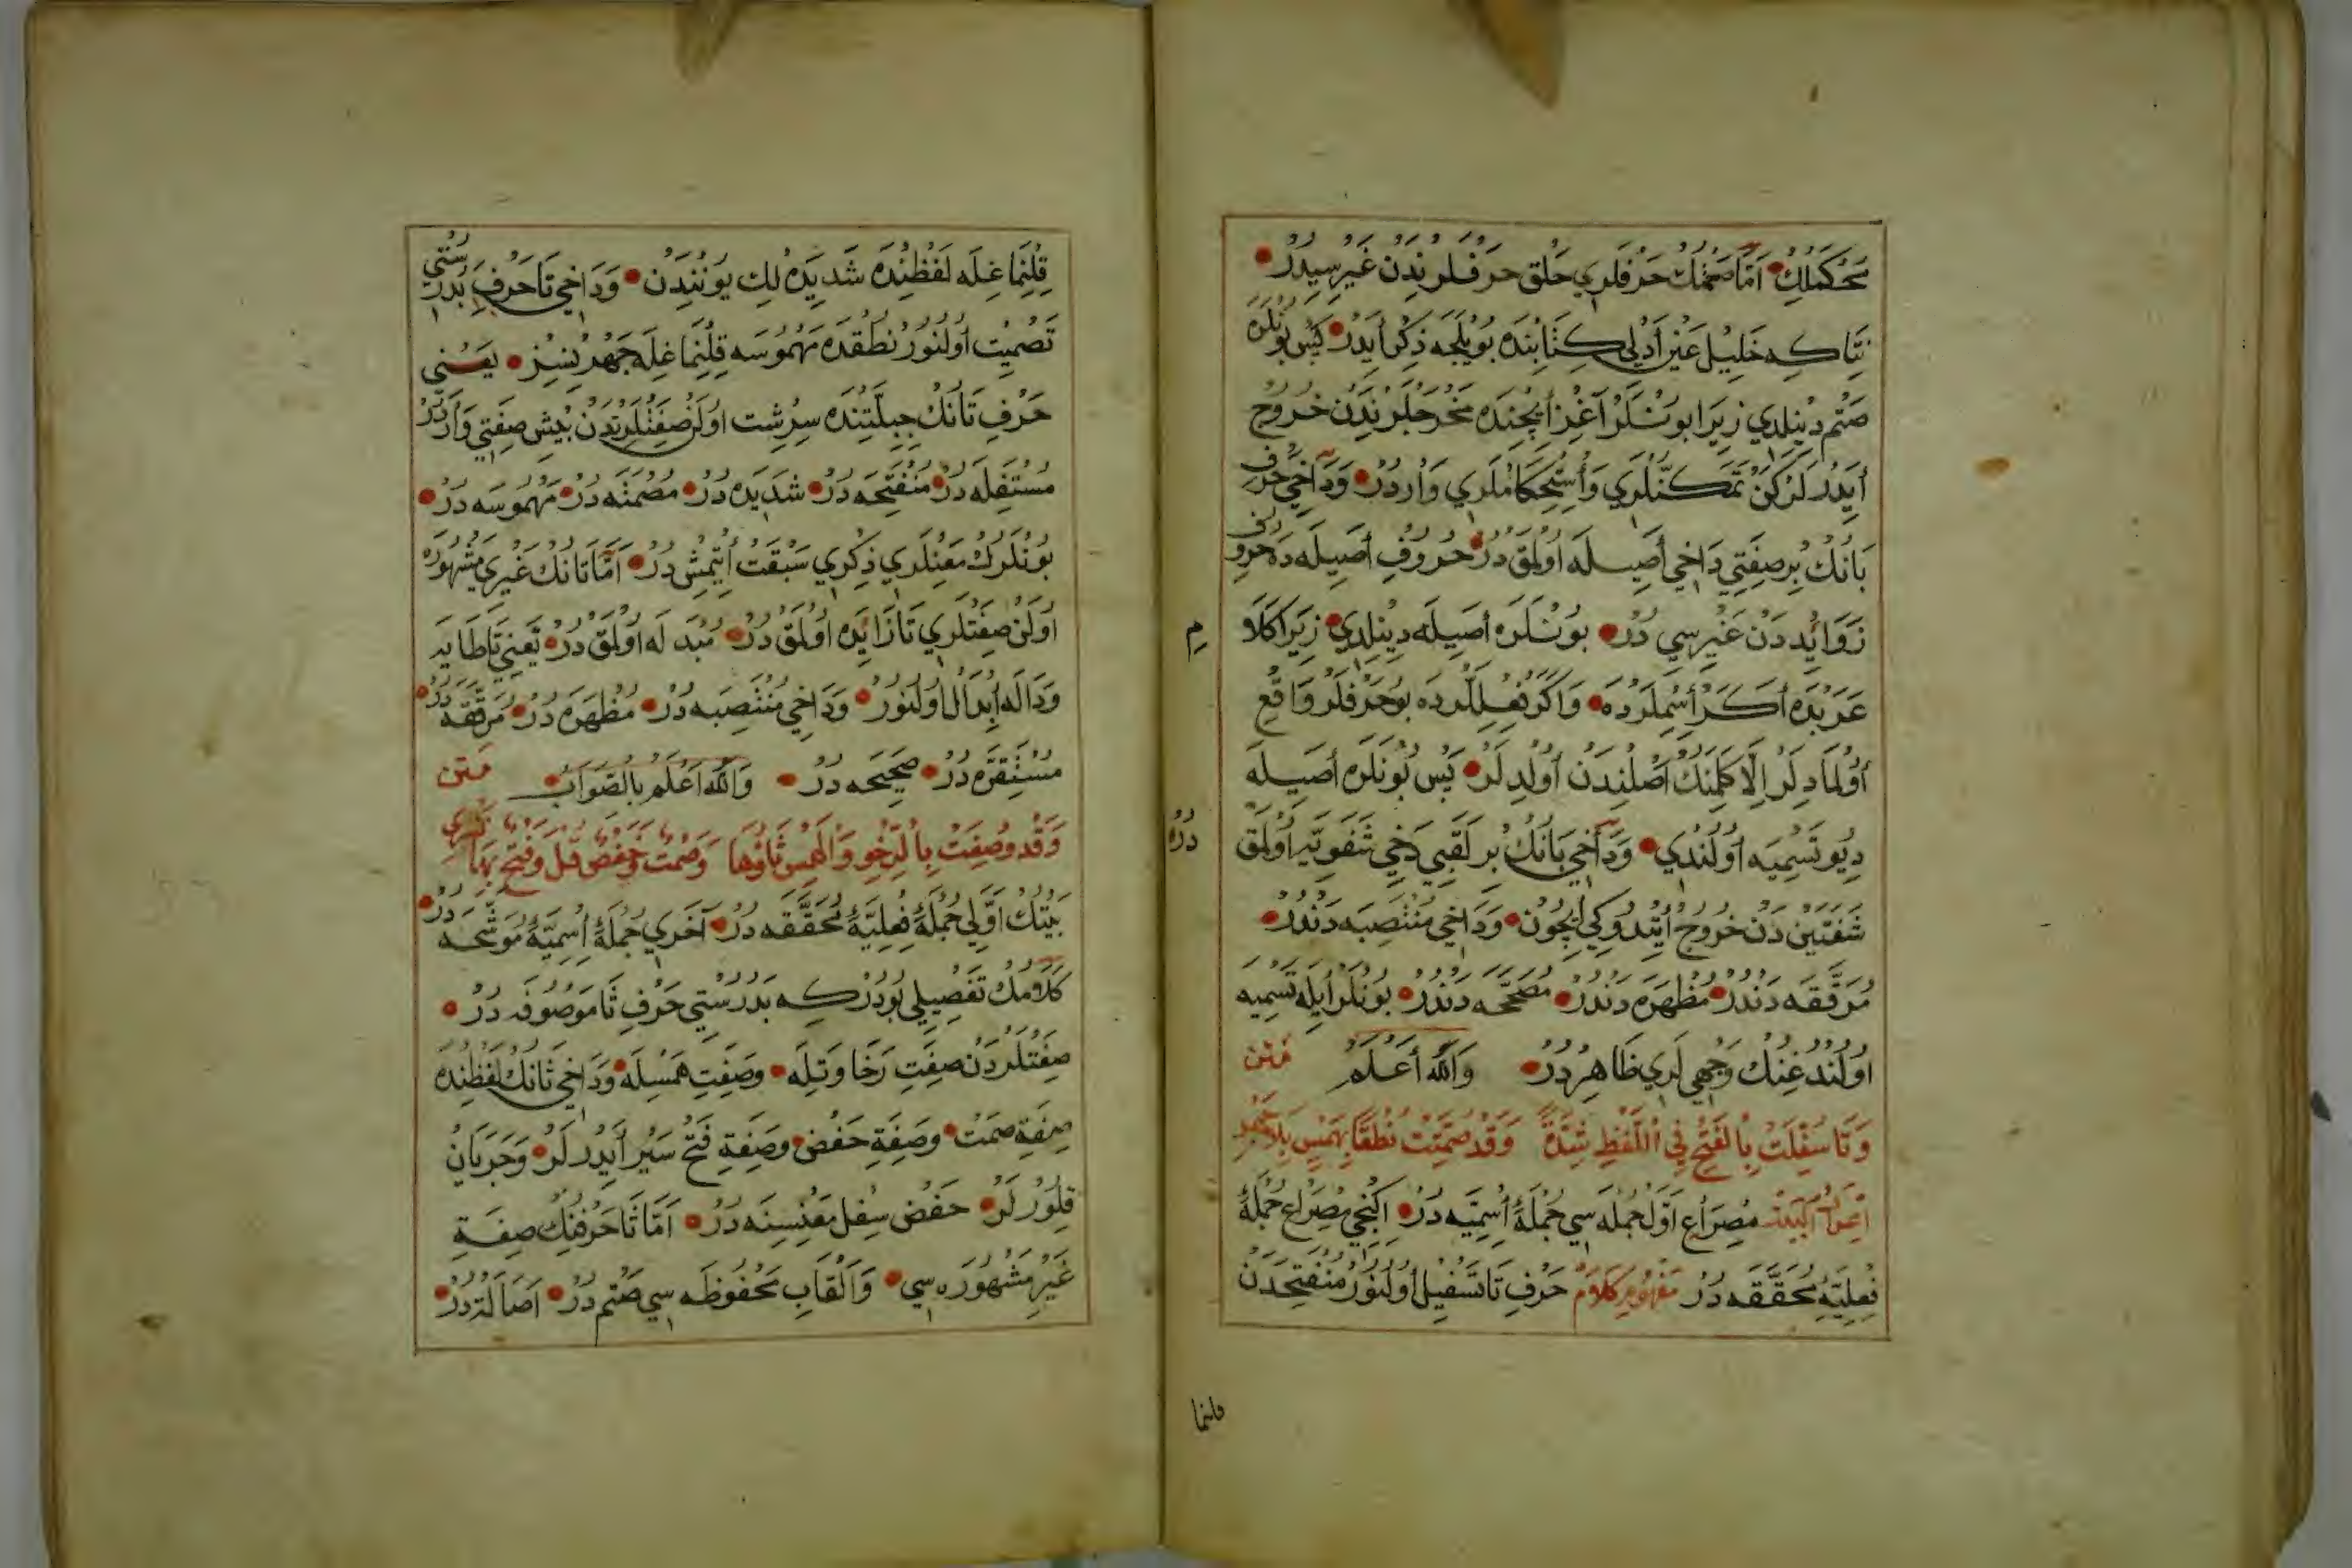 مُحْكَمْلِكْ اَمَّا صَتْمُكْ حَرْفلَرِي حَلْق حَرْفلَرِنْدَنْ غَيْرِ سِيدُرْ
نِتَاكِه خَلِيل عَيْن أَدْلِي كِتَابِنْدَه بُويْلَجَه ذِكْر أَيْدَرْ پَسْ بُونْلَرَه
صَتْم دِينِلْدِي زِيرَا بُونْلَرْ آغِزْ أيچِنْدَه مَخْرَجلَرِنْدَنْ خُرُوج
أَيْدَرلَرْكَنْ تَمَكُّنْلَرِي وَأُسْتِحْكَامْلَرِي وَارْدُرْ وَدَاخِي حَرْفِ
بَانُكْ بِر صِفَتِي دَاخِي أَصِيلَه اُولْمَقْ دُرْ حُرُوفِ أَصِيلَه دَه حُرُوف
زَوَائِد دَنْ غَيْرِسِي دُرْ بُونْلَرَه أَصِيلَه دِينِلْدِي زِيرَا كَلَام
عَرَبْدَه أَكَرْ أَسْمِلَرْدَه وَاكَرْ فِعِللَرْدَه بُو حَرْفلَرْ وَاقِع
أُولْمَادِيلَرْ اِلَّا كَلِمَنِكْ اَصْلِنْدَنْ أُولْدِلَرْ پَسْ بُونْلَرَه أَصِيلَه
دِيُو تَسْمِيَه اُولُنْدِي وَدَاخِي بَانُكْ بِر لَقَبِي دَخِي شَفَوِيَّه اُولْمَقْ دُرْ
شَفَتَيْن دَنْ خُرُوج أَيْتدُوكِي اِيچُونْ وَدَاخِي مُنْتَصِبَه دَنْدُرْ
مُرَقَّقَه دَنْدُرْ مُظْهَرَه دَنْدُرْ مُصَحَّحَه دَنْدُرْ بُونْلَرْ أَيلَه تَسْمِيَه
اُولُنْدُغِنُكْ وَجْهِي لَرِي ظَاهِرْدُرْ وَاللّٰهُ أَعْلَمُ مَتن
وَتَا سُفِّلَتْ بِالْفَتْحِ فِي اللَّفْظِ شِدَّةً وَقَدْ صُمِّتَتْ نُطْقًا بِهَمْسٍ بِلَا جَهْرِ
اِعْرَابُ الْبَيْت مِصْرَاع اَوَّل جُمْلَه سِي جُمْلَۀ أِسْمِيَّه دُرْ اِكِنْجِي مِصْرَاع جُمْلَۀ
فِعْلِيَّۀ مُحَقَّقَه دُرْ مَفْهُومِ كَلَامْ حَرْفِ تَا تَسْفِيل اُولُنُورْ مُنْفَتِحَدَنْ
قلنما
قِلِنْمَاغِلَه لَفْظِنْدَه شَدِيدَه لِك يُونِنْدَنْ وَدَاخِي تَا حَرْفِ بَدُرُسْتِي
تَصْمِيت اُولُنُورْ نُطْقدَه مَهْمُوسَه قِلِنْمَاغِلَه جَهْرسِزْ يَعْنِي
حَرْفِ تَانُكْ جِبِلَّتِنْدَه سِرِشْت اُولَنْ صِفَتْلَرِنْدَنْ بَيْش صِفَتِي وَارْدُرْ
مُسْتَفِلَه دُرْ مُنْفَتِحَه دُرْ شَدِيدَه دُرْ مُصْمَتَه دُرْ مَهْمُوسَه دُرْ
بُونْلَرِكْ مَعْنِلَرِي ذِكْرِي سَبْقَتْ أَيْتِمِشْ دُرْ اَمَّا تَانُكْ غَيْرِي مَشْهُورَه
اُولَنْ صِفَتْلَرِي تَا زَايِدَه اُولْمَقْ دُرْ مُبْدَلَه اُولْمَقْ دُرْ يَعْنِي تَا طَايَه
وَدَالَه اِبْدَال اُولُنُورْ وَدَاخِي مُنْتَصِبَه دُرْ مُظْهَرَه دُرْ مُرَقَّقَه دُرْ
مُسْتَقِرَّه دُرْ صَحِيحَه دُرْ وَاللّٰهُ اَعْلَمُ بِالصَّوَابْ مَتن
وَقَدْ وُصِفَتْ بِالرَّخْوِ وَالْهَمْسِ ثَاؤُهَا وَصَمْتٌ وَخَفْضٌ قُلْ وَفَتْحٌ بِهَا يَسْرِي
بَيْتُكْ اَوَّلِي جُمْلَۀ فِعْلِيَّۀ مُحَقَّقَه دُرْ آخَرِي جُمْلَۀ اِسْمِيَّۀ مُوَشَّحَه دُرْ
كَلَامُكْ تَفْصِيلِي بُودُرْكِه بَدُرُسْتِي حَرْفِ ثَا مَوْصُوفَه دُرْ
صِفَتْلَرْدَنْ صِفَتِ رَخَاوَتِلَه وَصِفَتِ هَمْسِلَه وَدَاخِي ثَانُكْ لَفْظِنْدَه
صِفَةِ صَمْت وَصِفَةِ خَفْض وَصِفَةِ فَتْح سَيْر أَيْدَرلَرْ وَجَرَيَانْ
قِلُورْلَرْ خَفْض سُفْل مَعْنِسِنَه دُرْ اَمَّا ثَا حَرْفِنِكْ صِفَةِ
غَيْرِ مَشْهُورَه سِي وَاَلْقَابِ مَحْفُوظَه سِي صَتْم دُرْ اَصَالَتدُرْ